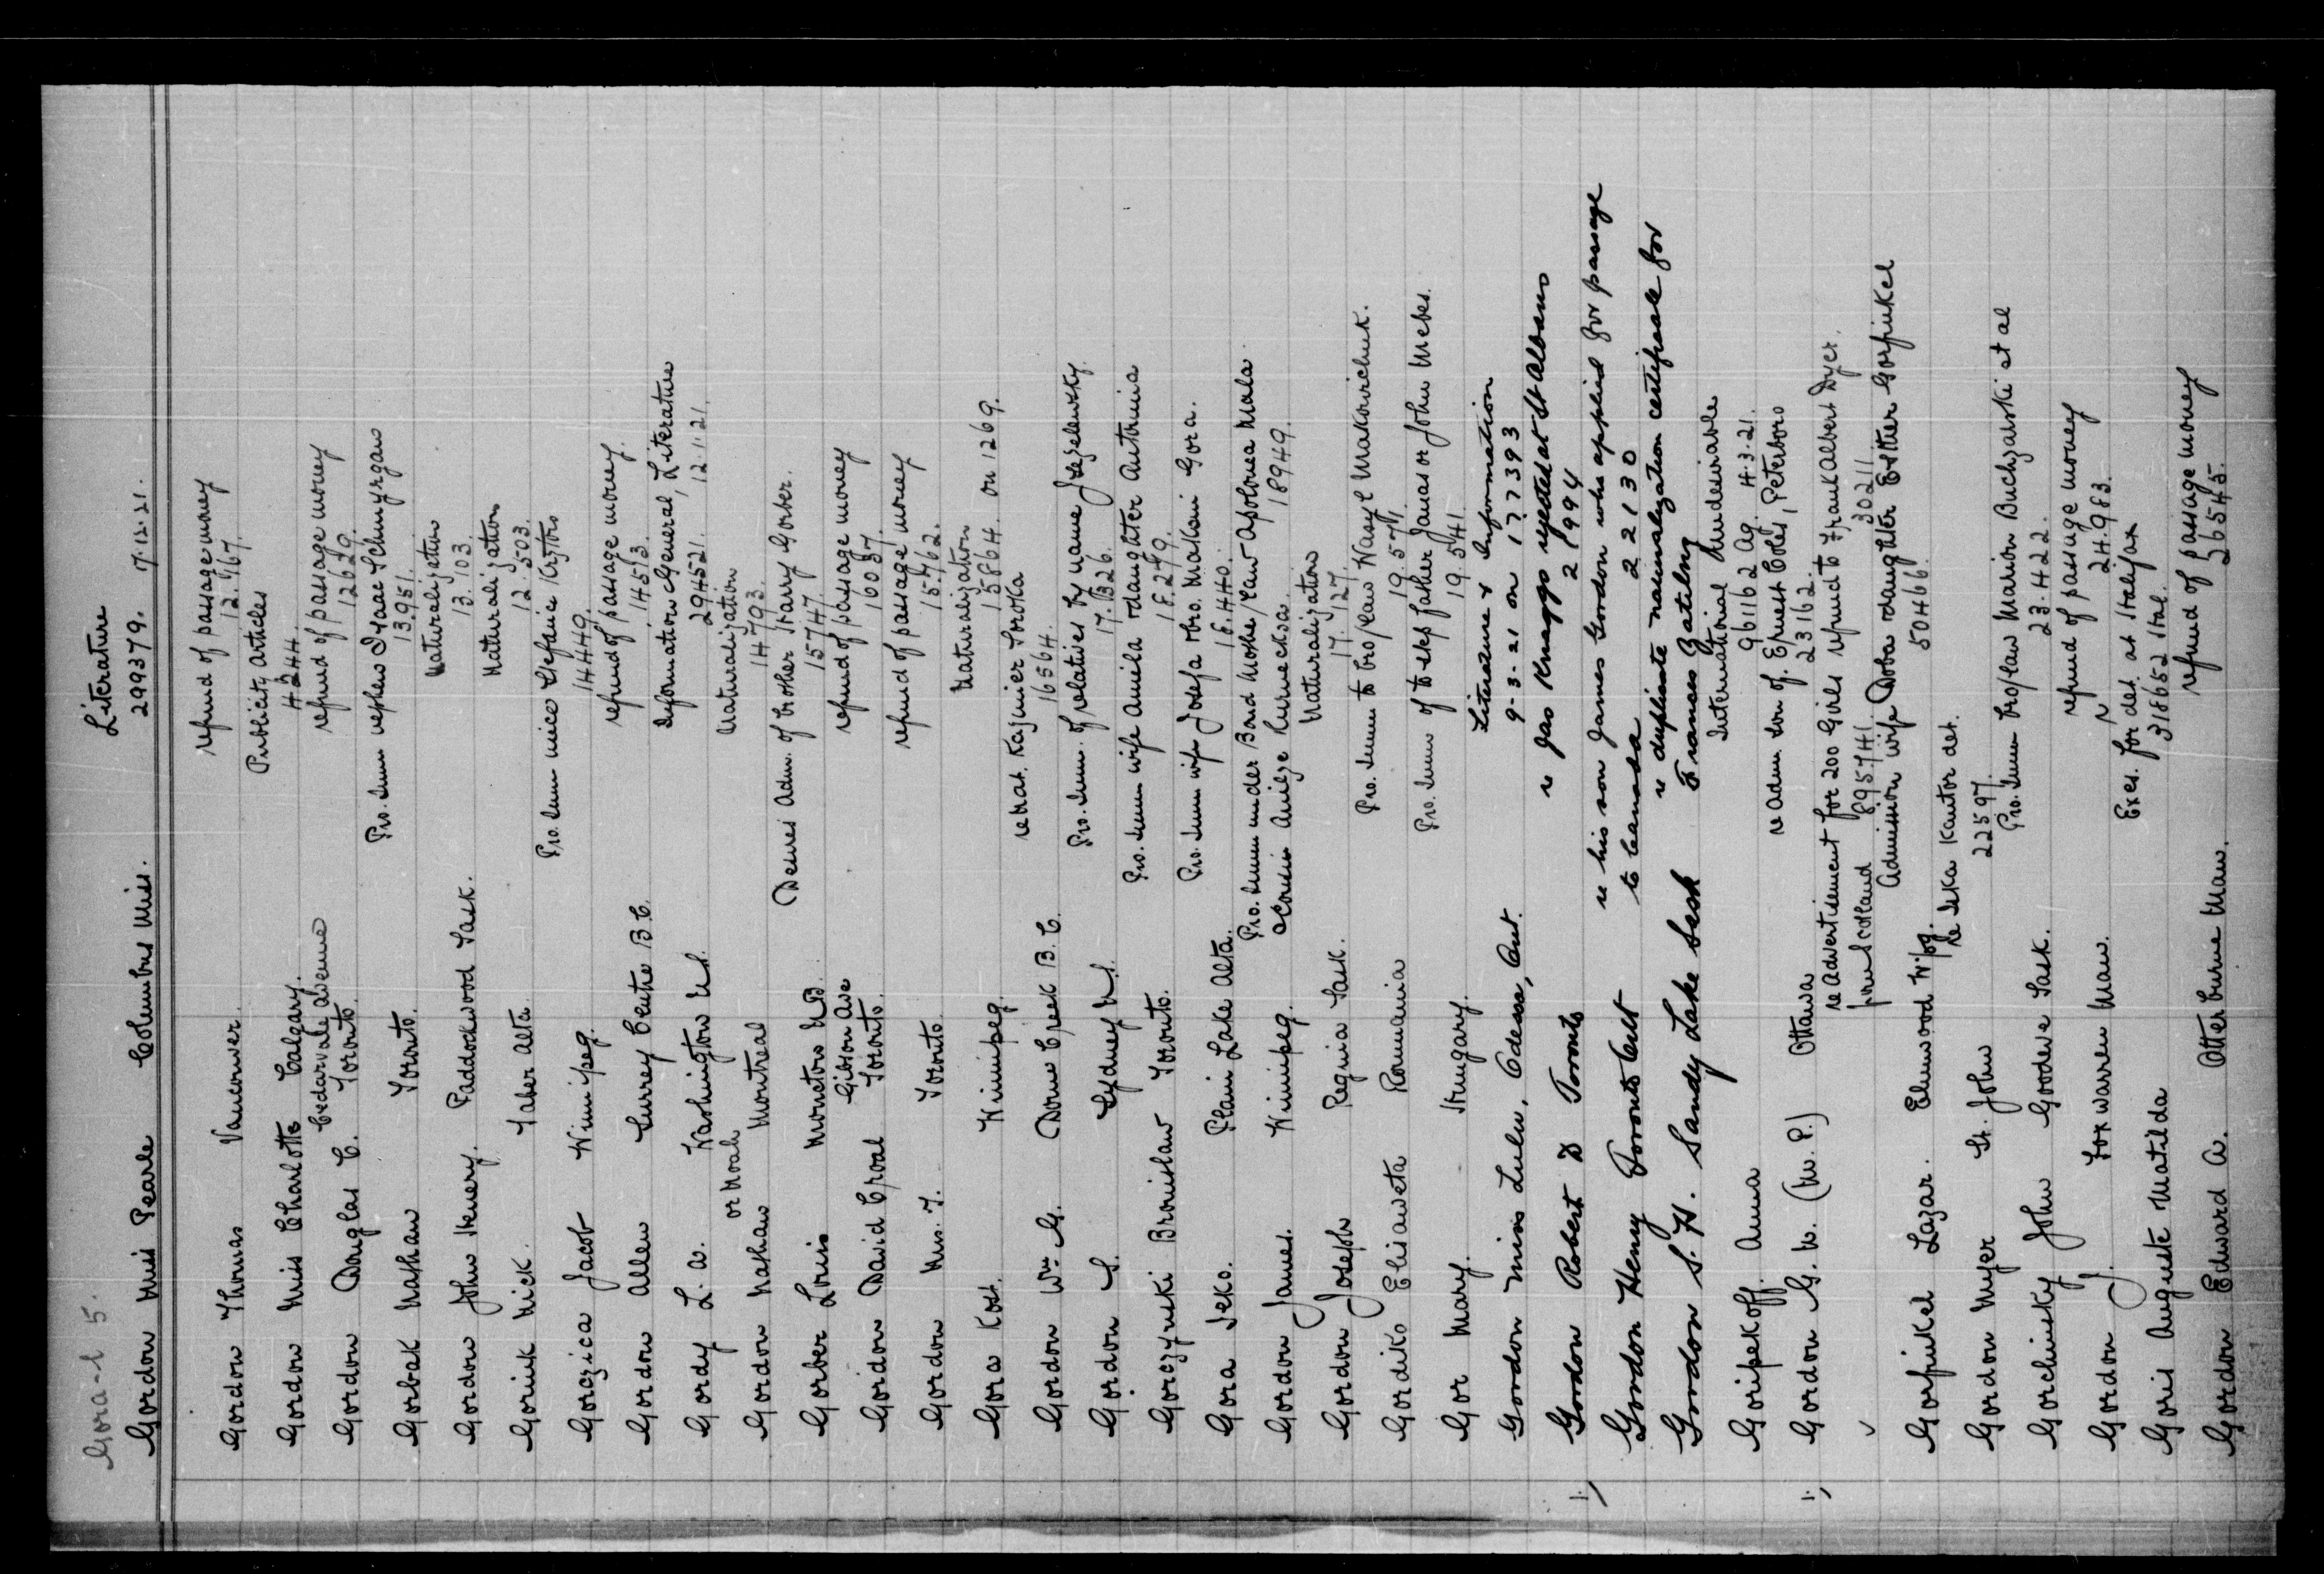 Gora-l 5.
Literature
Gordon Miss Pearle Columbus Miss. 299379. 7.12.21.
refund of passage money
Gordon Thomas Vancouver. 12.167.
Publicity Articles
Gordon Miss Charlotte Calgary. 4244.
Cedarvale Avenue refund of passage money
Gordon Douglas C. Toronto. 12629.
Pro. Imm nephew Isaac
Gorbak Nathan Toronto. 13951.
Naturalization
Gordon John Henery. Paddockwood Sask. 13.103.
Naturalization
Gorink Nick. Taber Alta. 12.503.
Pro. Imm niece Stefanie
Gorczica Jacob Winnipeg. 14449.
refund of passage money.
Gordon Allen Surrey Centre B.C. 14513.
Information General, Literature
Gordy L. W. Washington U.S. 294521. 12.1.21.
or Noah Naturalization
Gordon Nathan Montreal 14793.
Desires Adm. of brother Harry Gorber.
Gorber Louis Moncton N.B. 15747.
Gibson Ave refund of passage money
Gordon David Croal Toronto. 16037.
refund of passage money
Gordon Mrs. T. Toronto. 15.762.
Naturalization
Gora Kost. Winnipeg. 15864. on 1269.
re Nat. Kazmier Soroka
Gordon Wm G. Dome Creek B.C. 16564.
Pro. Imm. of relatives by name
Gordon S. Sydney N.S. 17.826.
Pro. Imm wife Amila & daughter Antonina
Gorczynski Bronislaw Toronto. 18.249.
Pro. Imm wife Josefa & bro. Maksim Gora.
Gora Seko. Plain Lake Alta. 18.440.
Pro. Imm under Bond Mother/law Apolonea Mala
Gordon James. Winnipeg. 18949.
Naturalization
Gordon Joseph Regina Sask. 17.127.
Pro. Imm to bro/law Wasyl Makowichuk.
Gordiko Elisaweta Roumania 19.571.
Pro. Imm of to step father James or John Mebes.
Gor Mary. Hungary. 19.541.
Literature & Information
Gordon Miss Lulu, Odessa, Ont. 9-3-21 on 177393
re Jas Knaggs rejected at St Albans
1. Gordon Robert D Toronto 21994
re his son James Gordon who applied for passage
Gordon Henry Toronto Ont to Canada 22130
re duplicate naturalization certificate for
Gordon S. H. Sandy Lake Sask Frances
International Undesirable
Goripekoff. Anna 961162 Ag. 4.3.21.
re Adm. son of. Ernest Coles, Peterboro
1. Gordon G. W. (M.P.) Ottawa 23162.
re Advertisement for 200 Girls refund to Frank Albert Dyer.
✓ from Scotland 895741. 30211
Admission wife Doba & daughter Esther Gorfinkel
Gorfinkel Lazar. Elmwood W'pg. 50466.
re Seka Kantor det.
Gordon Myer St. John 22597.
Pro. Imm bro/law Marion Buchzarski et al
Gorchinsky John Goodeve Sask. 23.422.
refund of passage money
Gordon J. Foxwarren Man. 24.983.
Exes. for det. at Halifax
Goris Auguste Matilda 318652 Hal.
refund of passage money
Gordon Edward A. Otterburne Man. 26545.